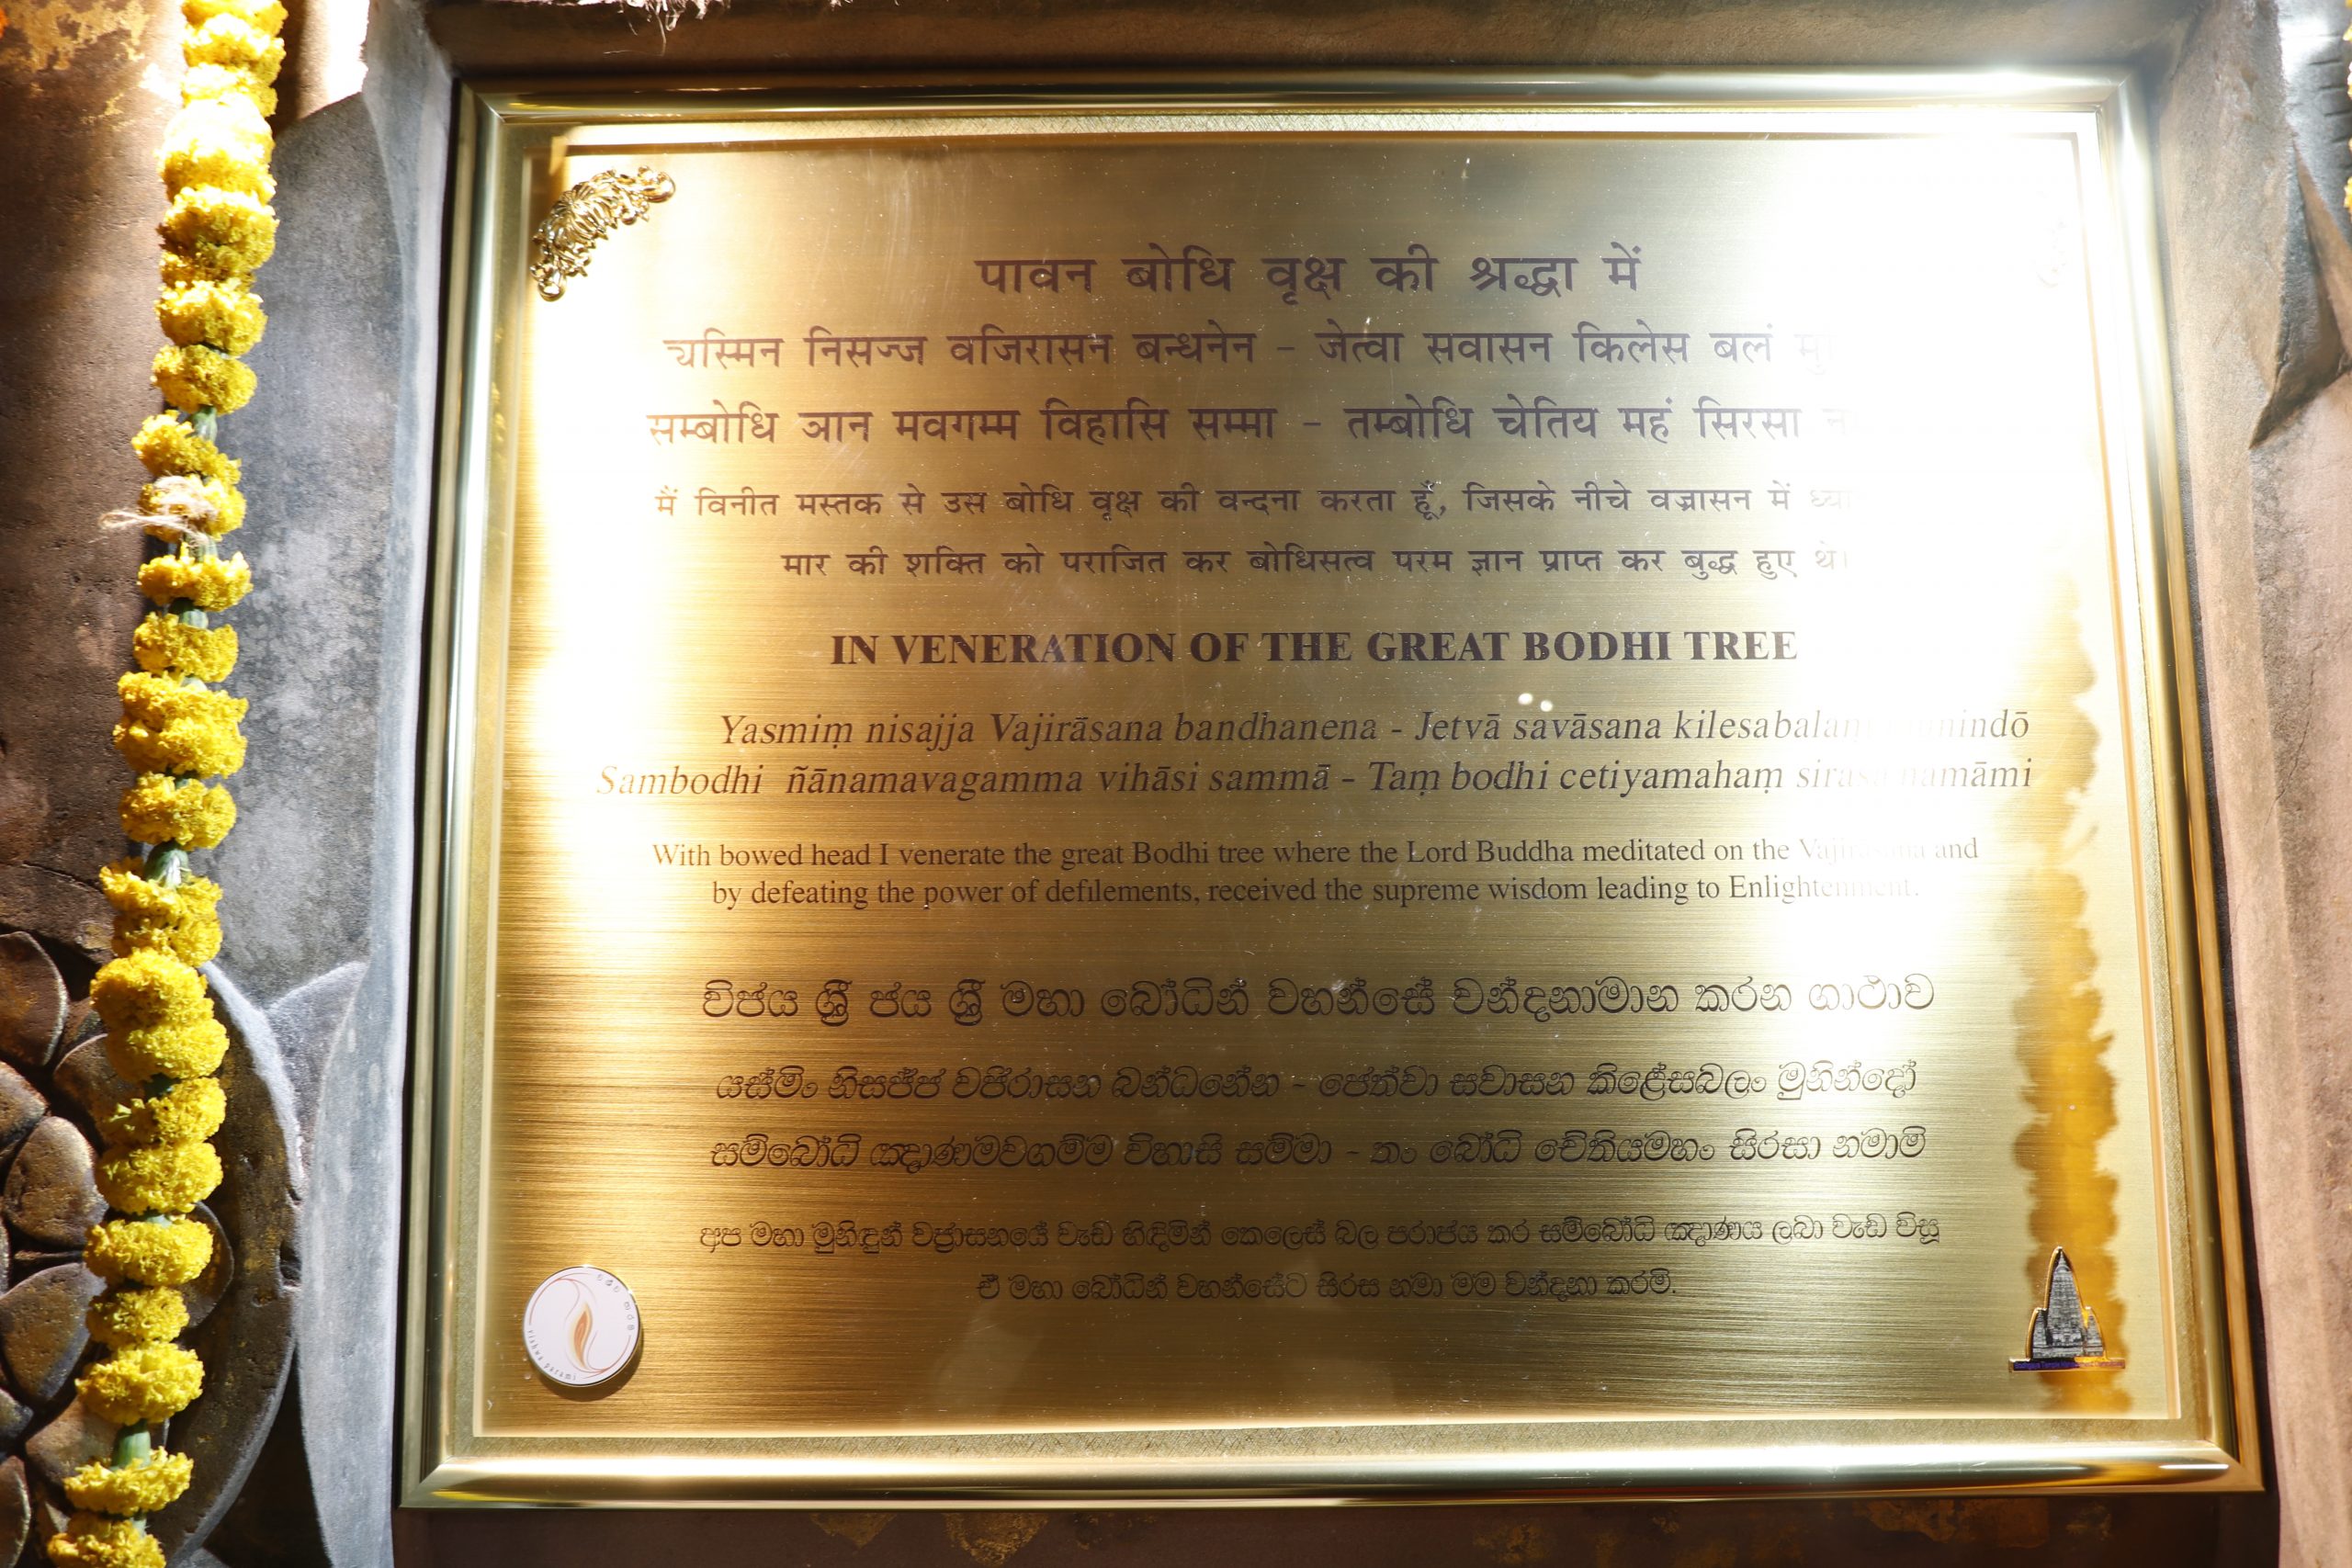 पावन बोधि वृक्ष की श्रद्धा में
यस्मिन निसज्ज वजिरासन बन्धनेन - जेत्वा सवासन किलेस बलं
सम्बोधि ञान मवगम्म विहासि सम्मा - तम्बोधि चेतिय महं सिरसा
मैं विनीत मस्तक से उस बोधि वृक्ष की वन्दना करता हूँ, जिसके नीचे वज्रासन में
मार की शक्ति को पराजित कर बोधिसत्व परम ज्ञान प्राप्त कर बुद्ध हुए थे।
IN VENERATION OF THE GREAT BODHI TREE
Yasmiṃ nisajja Vajirāsana bandhanena - Jetvā savāsana kilesabalaṃ
Sambodhi ñānamavagamma vihāsi sammā - Taṃ bodhi cetiyamahaṃ sirasā namāmi
With bowed head I venerate the great Bodhi tree where the Lord Buddha meditated on the Vajirasana and
by defeating the power of defilements, received the supreme wisdom leading to Enlightenment.
විජය ශ්‍රී ජය ශ්‍රී මහා බෝධීන් වහන්සේ වන්දනාමාන කරන ගාථාව
යස්මිං නිසජ්ජ වජිරාසන බන්ධනේන - ජේත්වා සවාසන කිළේසබලං මුනින්දෝ
සම්බෝධි ඤාණමවගම්ම විහාසි සම්මා - තං බෝධි චේතියමහං සිරසා නමාමි
අප මහා මුනිඳුන් වජ්‍රාසනයේ වැඩ හිඳිමින් කෙලෙස් බල පරාජය කර සම්බෝධි ඤාණය ලබා වැඩ විසූ
ඒ මහා බෝධීන් වහන්සේට සිරස නමා මම වන්දනා කරමි.